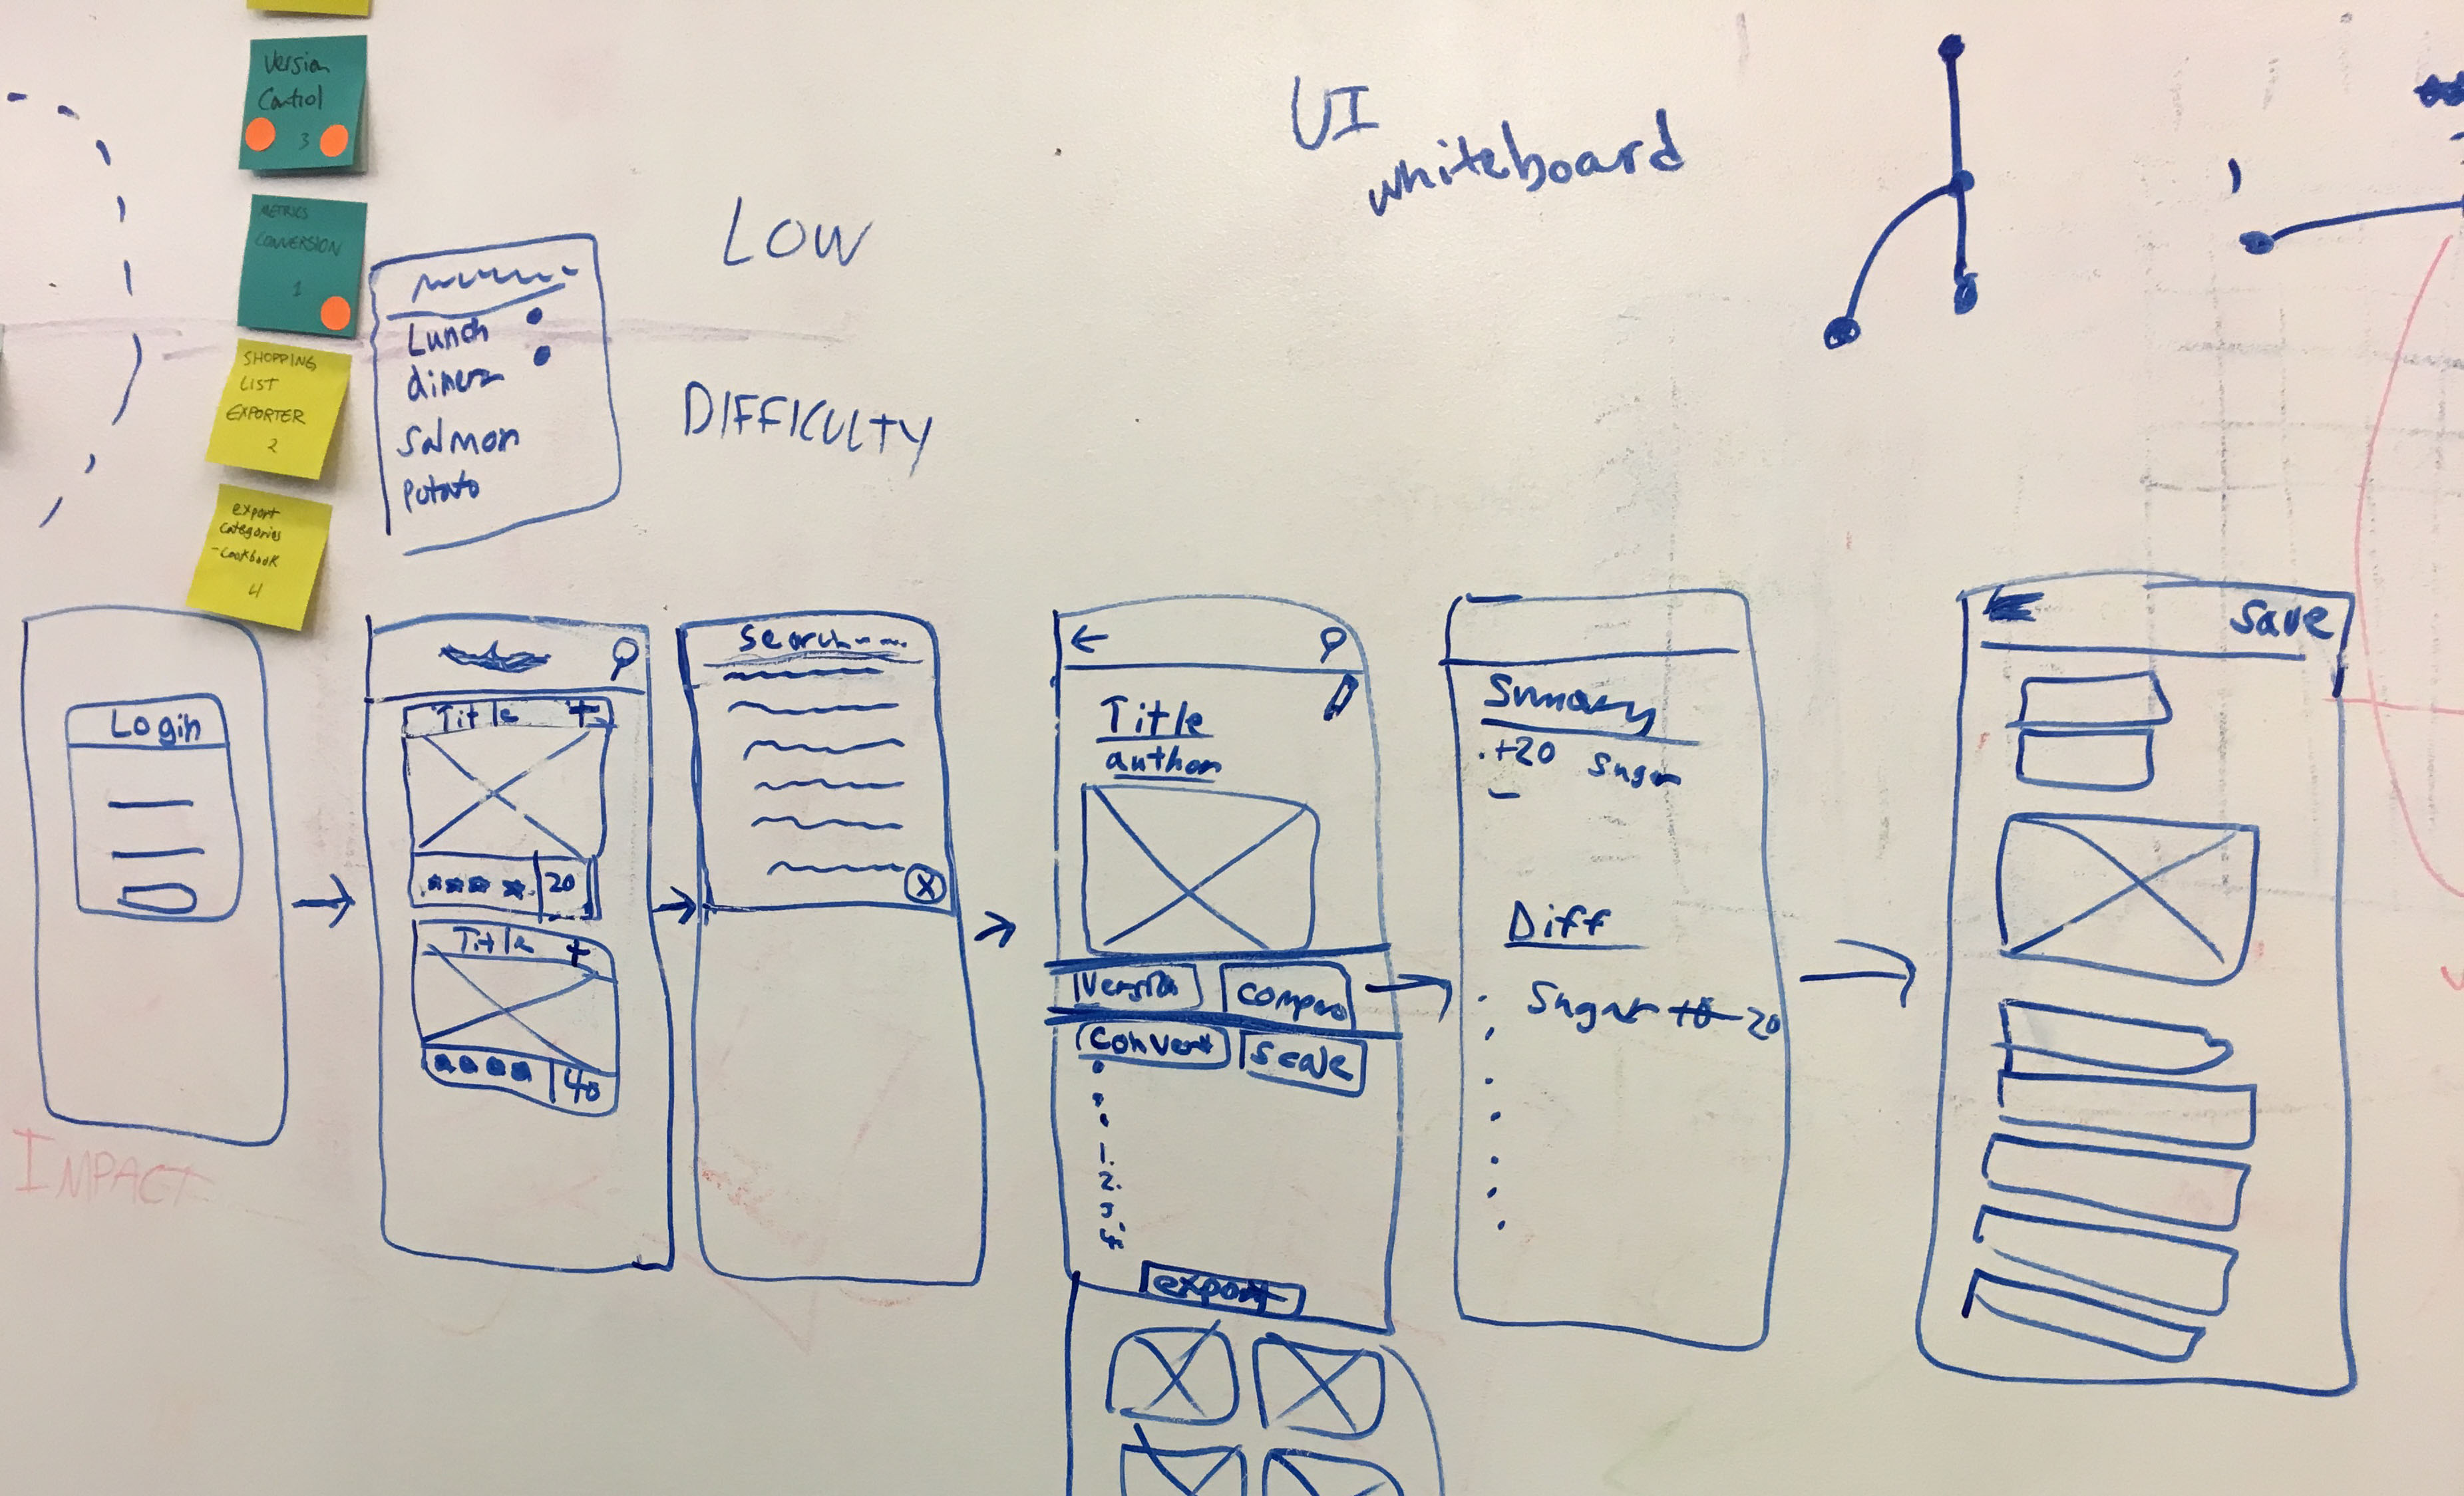 Version
Control
3
METRICS
CONVERSION
1
SHOPPING
LIST
EXPORTER
2
export
categories
-cookbook
4
Lunch
diner
Salmon
potato
LOW
DIFFICULTY
UI
whiteboard
IMPACT
Login
Title +
20
Title +
40
Search
←
Title
author
Version
compare
convert
scale
1.
2.
3
4.
export
Sumary
+20 Sugar
-
Diff
Sugar 10 20
Save